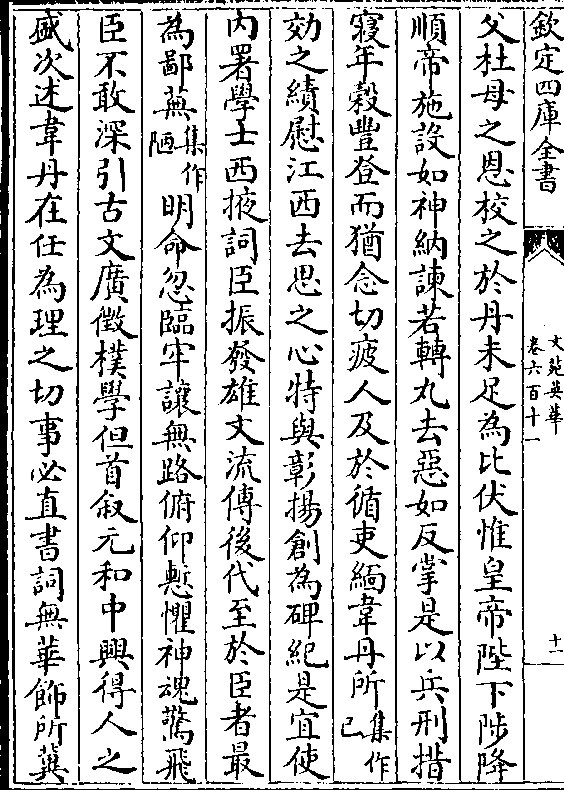 欽定四庫全書
文苑英華
卷六百十一
十一
父杜母之恩校之於丹未足為比伏惟皇帝陛下陟降
順帝施設如神納諫若轉丸去惡如反掌是以兵刑措
寢年榖豐登而猶念切疲人及於循吏緬韋丹所集作已
効之績慰江西去思之心特與彰揚創為碑紀是宜使
內署學士西掖詞臣振發雄文流傳後代至於臣者最
為鄙蕪集作陋明命忽臨牢讓無路俯仰慙懼神魂驚飛
臣不敢深引古文廣徵樸學但首叙元和中興得人之
盛次述韋丹在任為理之切事必直書詞無華飾所冀